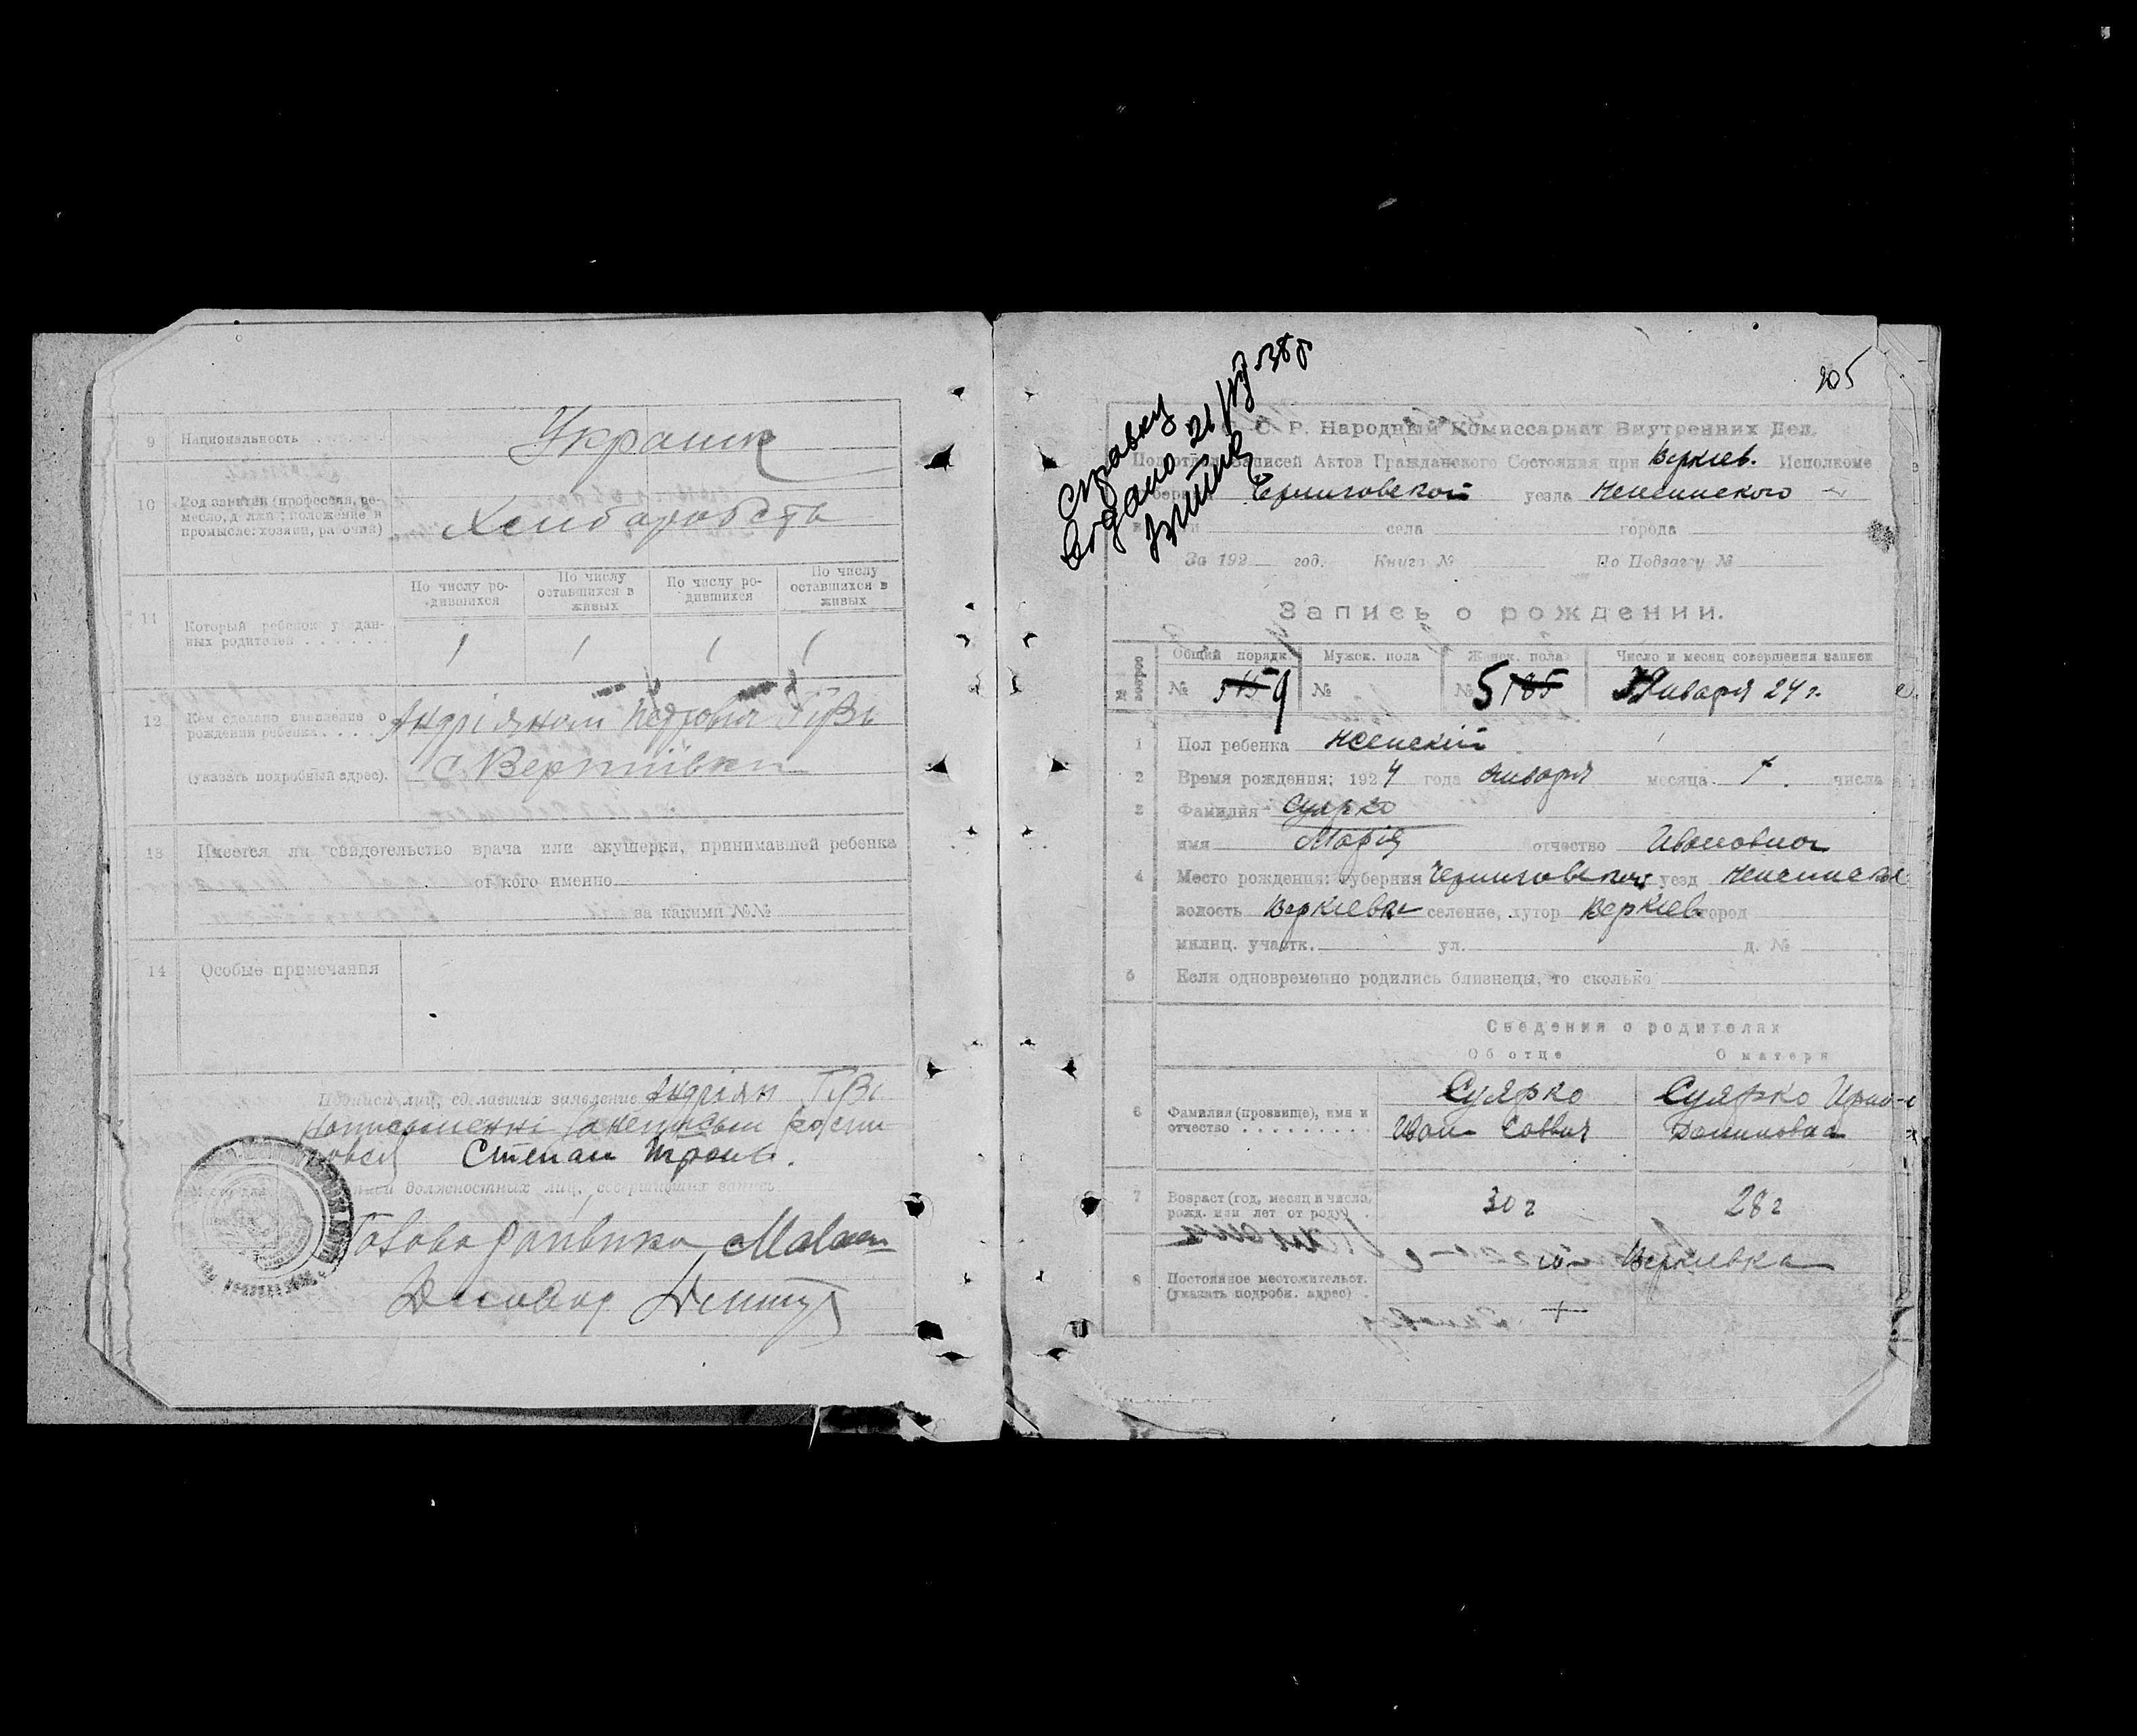 9 Национальность
Украинк
10 Род занятий (профессия, ремесло, должн.; положение в промысле: хозяин, рабочий)
Хлиборобств
11 Который ребенок у данных родителей
По числу родившихся
По числу оставшихся в живых
По числу родившихся
По числу оставшихся в живых
1 1 1 1
12 Кем сделано заявление о рождении ребенка
(указать подробный адрес).
Андріяном
с. Вертіївки
13 Имеется ли свидетельство врача или акушерки, принимавшей ребенка
от кого именно
за какими №№
14 Особые примечания
Подписи лиц, сделавших заявление Андріян
Степан
Подписи должностных лиц, совершивших запись
Діловод
205
справку
видано 21
С. С. Р. Народный Комиссариат Внутренних Дел.
Подотдел Записей Актов Гражданского Состояния при Веркиев. Исполкоме
Черниговской уезда Неженского
села города
За 192 год. Книга № По Подзагсу №
Запись о рождении.
Общий порядк. Мужск. пола Женск. пола Число и месяц совершения записи
№ 9 № № 5 Января 24 г.
1 Пол ребенка женский
2 Время рождения; 1924 года Января месяца числа
3 Фамилия Суярко
имя Марія отчество Ивановна
4 Место рождения: губерния Черниговская уезд Неженск
волость Веркіевка селение, хутор Веркіев город
милиц. участк. ул. д. №
5 Если одновременно родились близнецы, то сколько
Сведения о родителях
Об отце О матери
6 Фамилия (прозвище), имя и отчество
Суярко Суярко Ирин
Иван Саввич
7 Возраст (год, месяц и число, рожд. или лет от роду)
30 г 28 г
8 Постоянное местожительст. (указать подробн. адрес)
Веркиевка